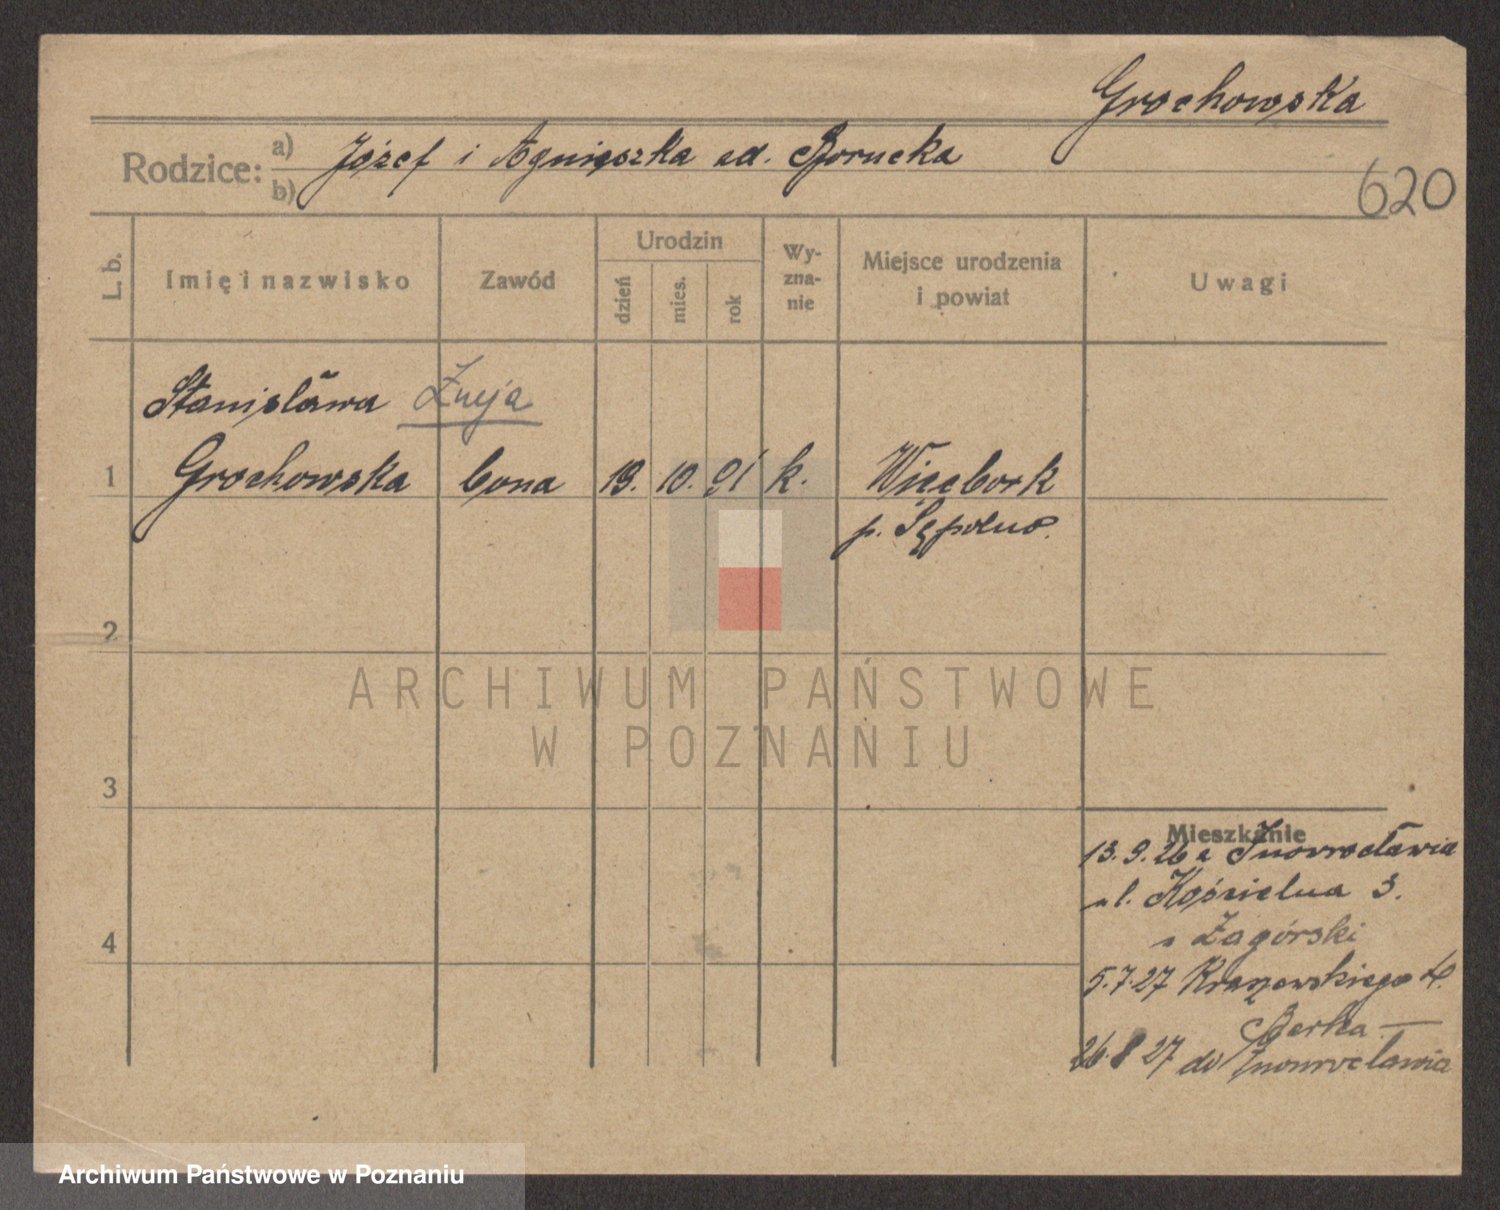 Grochowska
Rodzice: a) b) Józef i Agnieszka zd. Borucka
620
L. b.
Imię i nazwisko
Zawód
Urodzin
dzień
mies.
rok
Wy-
zna-
nie
Miejsce urodzenia
i powiat
Uwagi
Stanisława
1 Grochowska bona 19. 10. 91 k. Więcbork
p. Sępolno.
2
3
4
Mieszkanie
13.9.26 z Inowrocławia
ul. Kościelna 3.
u Zagórski
5.7.27 Kraszewskiego
Berka —
26.8.27 do Inowrocławia
ARCHIWUM PAŃSTWOWE
W POZNANIU
Archiwum Państwowe w Poznaniu